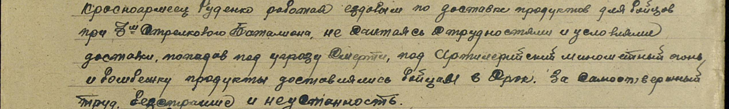 Красноармеец Руденко работая ездовым по доставке продуктов для бойцов
при 3ем Стрелкового Баталиона, не считаясь с трудностями и условиями
доставки, попадав под угрозу смерти, под Артилерийский минометный огонь
и бомбежку продукты доставлялись бойцам в срок. За самоотверженный
труд, бесстрашие и неустанность.